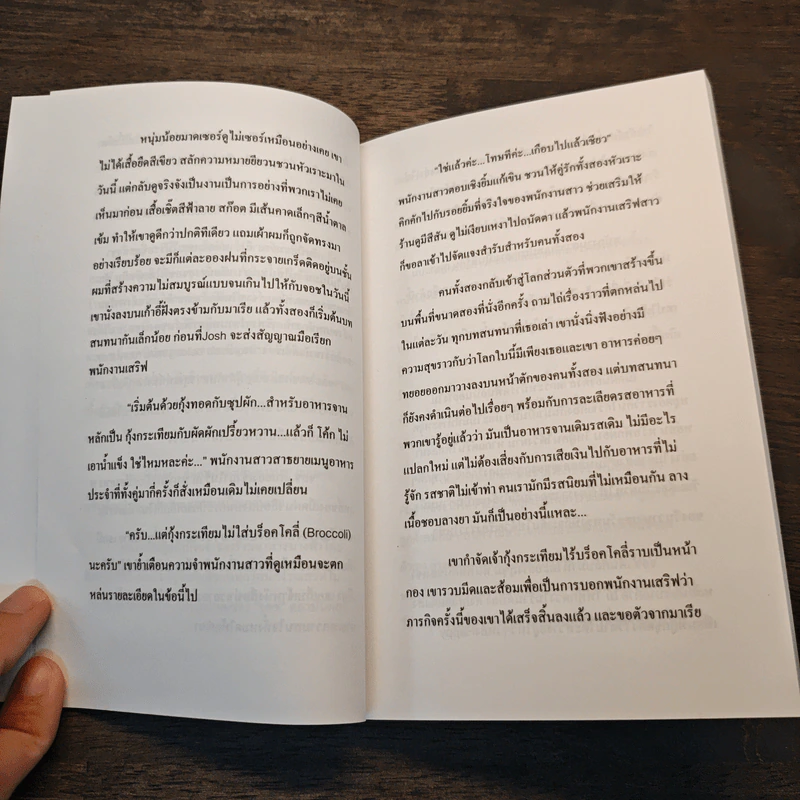 หนุ่มน้อยมาดเซอร์ดูไม่เซอร์เหมือนอย่างเคย เขา
ไม่ได้เสื้อยืดสีเขียว สลักความหมายชียวนชวนหัวเราะมาใน
วันนี้ แต่กลับดูจริงจังเป็นงานเป็นการอย่างที่พวกเราไม่เคย
เห็นมาก่อน เสื้อเชิ้ตสีฟ้าลาย สก๊อต มีเส้นคาดเล็กๆสีน้ำตาล
เข้ม ทำให้เขาดูดีกว่าปกติทีเดียว แถมเผ้าผมก็ถูกจัดทรงมา
อย่างเรียบร้อย จะมีก็แต่ละอองฝนที่กระจายเกร็ดติดอยู่บนชั้น
ผมที่สร้างความไม่สมบูรณ์แบบจนเกินไปให้กับจอชในวันนี้
เขานั่งลงบนเก้าอี้ฝั่งตรงข้ามกับมาเรีย แล้วทั้งสองก็เริ่มต้นบท
สนทนากันเล็กน้อย ก่อนที่Josh จะส่งสัญญาณมือเรียก
พนักงานเสริฟ
"เริ่มต้นด้วยกุ้งทอดกับซุปผัก...สำหรับอาหารจาน
หลักเป็น กุ้งกระเทียมกับผัดผักเปรี้ยวหวาน...แล้วก็ โค้ก ไม่
เอาน้ำแข็ง ใช่ไหมหละค่ะ..." พนักงานสาวสาธยายเมนูอาหาร
ประจำที่ทั้งคู่มากี่ครั้งก็สั่งเหมือนเดิมไม่เคยเปลี่ยน
"ครับ...แต่กุ้งกระเทียมไม่ใส่บร็อคโคลี่ (Broccoli)
นะครับ" เขาย้ำเตือนความจำพนักงานสาวที่ดูเหมือนจะตก
หล่นรายละเอียดในข้อนี้ไป
"ใช่แล้วค่ะ...โทษทีค่ะ...เกือบไปแล้วเชียว"
พนักงานสาวตอบเชิงยิ้มแก้เขิน ชวนให้คู่รักทั้งสองหัวเราะ
คิกคักไปกับรอยยิ้มที่จริงใจของพนักงานสาว ช่วยเสริมให้
ร้านดูมีสีสัน ดูไม่เงียบเหงาไปถนัดตา แล้วพนักงานเสริฟสาว
ก็ขอลาเข้าไปจัดแจงสำรับสำหรับคนทั้งสอง
คนทั้งสองกลับเข้าสู่โลกส่วนตัวที่พวกเขาสร้างขึ้น
บนพื้นที่ขนาดสองที่นั่งอีกครั้ง ถามไถ่เรื่องราวที่ตกหล่นไป
ในแต่ละวัน ทุกบทสนทนาที่เธอเล่า เขานั่งนิ่งฟังอย่างมี
ความสุขราวกับว่าโลกใบนี้มีเพียงเธอและเขา อาหารค่อยๆ
ทยอยออกมาวางลงบนหน้าตักของคนทั้งสอง แต่บทสนทนา
ก็ยังคงดำเนินต่อไปเรื่อยๆ พร้อมกับการละเลียดรสอาหารที่
พวกเขารู้อยู่แล้วว่า มันเป็นอาหารจานเดิมรสเดิม ไม่มีอะไร
แปลกใหม่ แต่ไม่ต้องเสี่ยงกับการเสียเงินไปกับอาหารที่ไม่
รู้จัก รสชาติไม่เข้าท่า คนเรามักมีรสนิยมที่ไม่เหมือนกัน ลาง
เนื้อชอบลางยา มันก็เป็นอย่างนี้แหละ...
เขากำจัดเจ้ากุ้งกระเทียมไร้บร็อคโคลี่ราบเป็นหน้า
กอง เขารวบมีดและส้อมเพื่อเป็นการบอกพนักงานเสริฟว่า
ภารกิจครั้งนี้ของเขาได้เสร็จสิ้นลงแล้ว และขอตัวจากมาเรีย